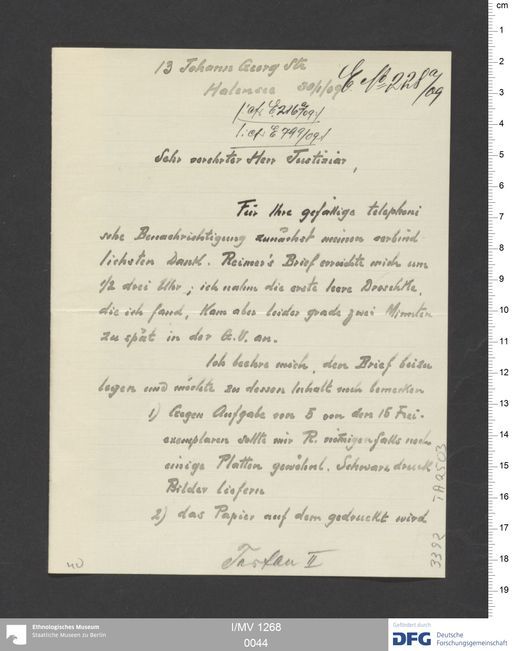 13 Johann Georg Str.
Halensee 30/1/09
E No 228a/09
/: cf. E 216a/09 :/
/: cf. E 799/09 :/
Sehr verehrter Herr Justiziar,
Für Ihre gefällige telephoni
sche Benachrichtigung zunächst meinen verbind-
lichsten Dank. Reimer's Brief erreichte mich um
1/2 drei Uhr; ich nahm die erste leere Droschke,
die ich fand, kam aber leider grade zwei Minuten
zu spät in der G.V. an.
Ich beehre mich, den Brief beizu
legen und möchte zu dessen Inhalt noch bemerken
1) Gegen Aufgabe von 5 von den 15 Frei-
exemplaren sollte mir R. nötigenfalls noch
einige Platten gewöhnl. Schwarzdruck
Bilder liefern
2) das Papier auf dem gedruckt wird
40
3392 TA 0503
cm
1
2
3
4
5
6
7
8
9
10
11
12
13
14
15
16
17
18
19
Ethnologisches Museum
Staatliche Museen zu Berlin
I/MV 1268
0044
Gefördert durch
DFG Deutsche
Forschungsgemeinschaft